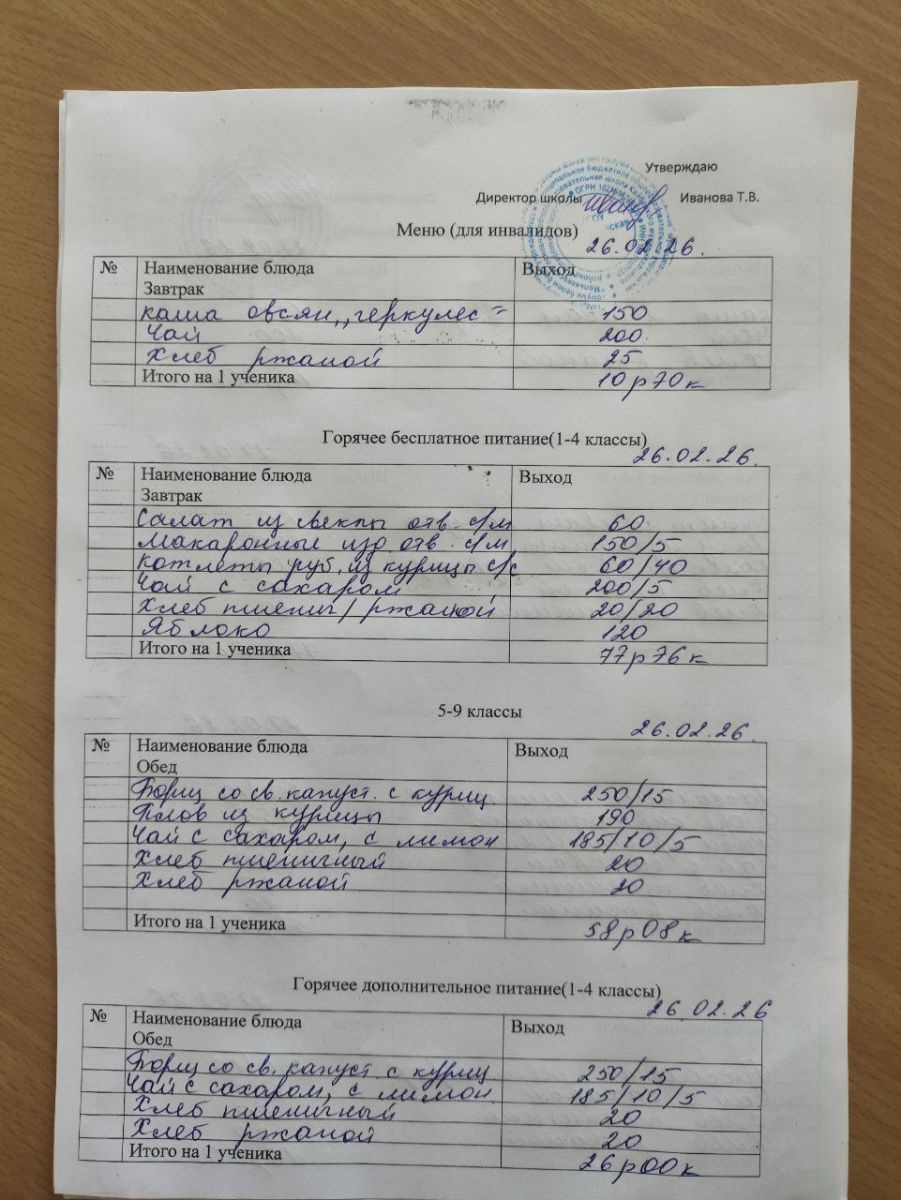 Утверждаю
Директор школы Иванова Т.В.
Меню (для инвалидов)
26.02.26.
№ Наименование блюда Выход
Завтрак
каша овсян,, геркулес" 150
Чай 200
Хлеб ржаной 25
Итого на 1 ученика 10р70к
Горячее бесплатное питание(1-4 классы)
26.02.26.
№ Наименование блюда Выход
Завтрак
Салат из свеклы отв. с/м 60
Макаронные изд отв. с/м 150/5
Котлеты руб. из курицы с/с 60/40
Чай с сахаром 200/5
Хлеб пшенич/ржаной 20/20
Яблоко 120
Итого на 1 ученика 77р76к
5-9 классы
26.02.26.
№ Наименование блюда Выход
Обед
Борщ со св. капуст. с куриц. 250/15
Плов из курицы 190
Чай с сахаром, с лимон 185/10/5
Хлеб пшеничный 20
Хлеб ржаной 20
Итого на 1 ученика 58р08к
Горячее дополнительное питание(1-4 классы)
26.02.26
№ Наименование блюда Выход
Обед
Борщ со св. капуст. с куриц 250/15
Чай с сахаром, с лимон. 185/10/5
Хлеб пшеничный 20
Хлеб ржаной 20
Итого на 1 ученика 26р00к